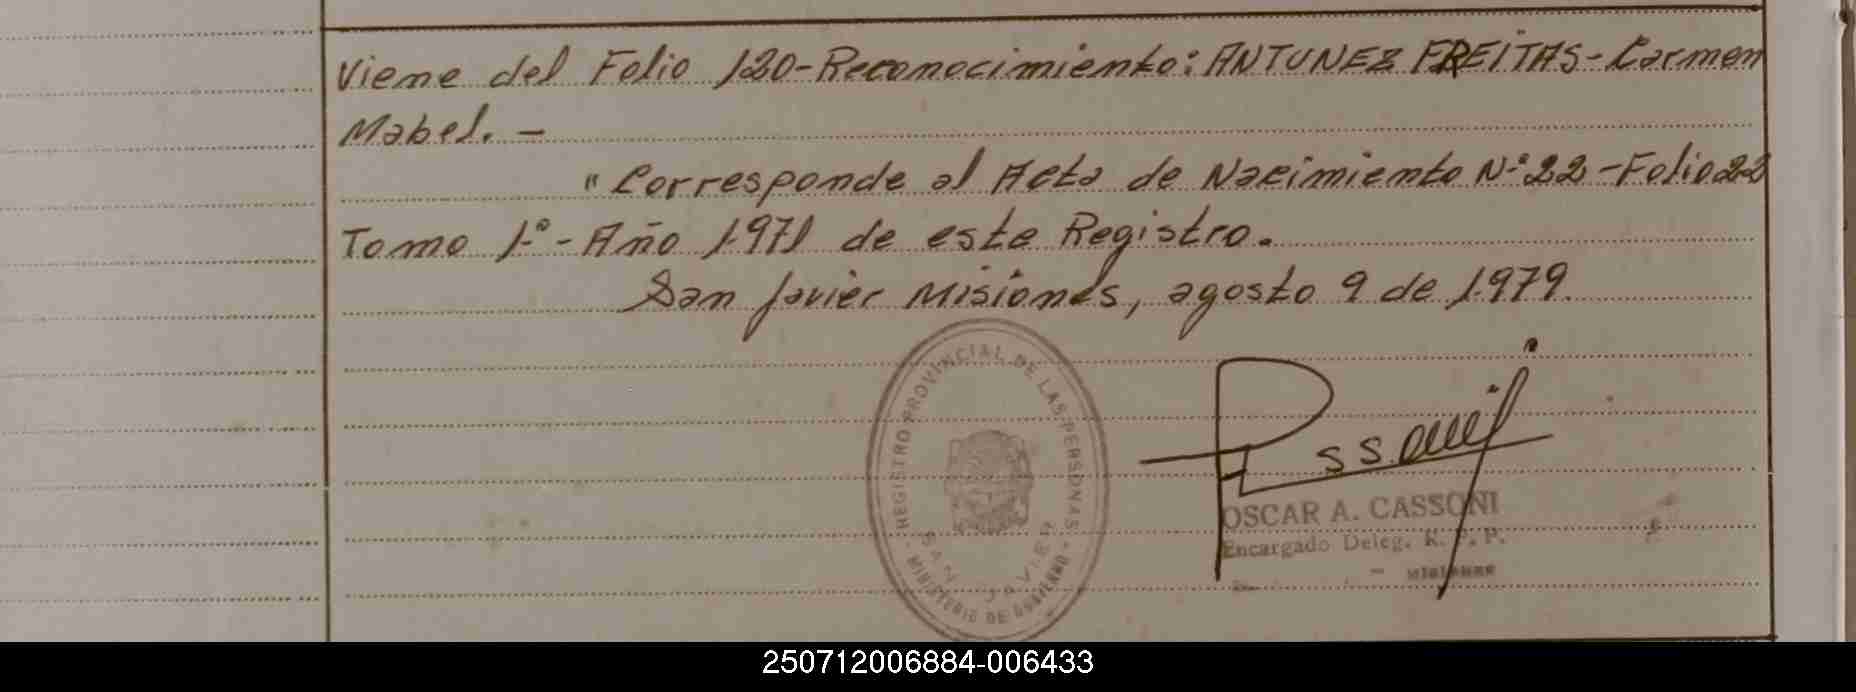 Viene del Folio 120-Reconocimiento: ANTUNEZ FREITAS-Carmen
Mabel. -
"Corresponde al Acta de Nacimiento N.º 22-Folio 22
Tomo 1.º-Año 1971 de este Registro.
San Javier Misiones, agosto 9 de 1979.
REGISTRO PROVINCIAL DE LAS PERSONAS
SAN JAVIER
MINISTERIO DE GOBIERNO
OSCAR A. CASSONI
Encargado Deleg. R. P. P.
- Misiones
250712006884-006433